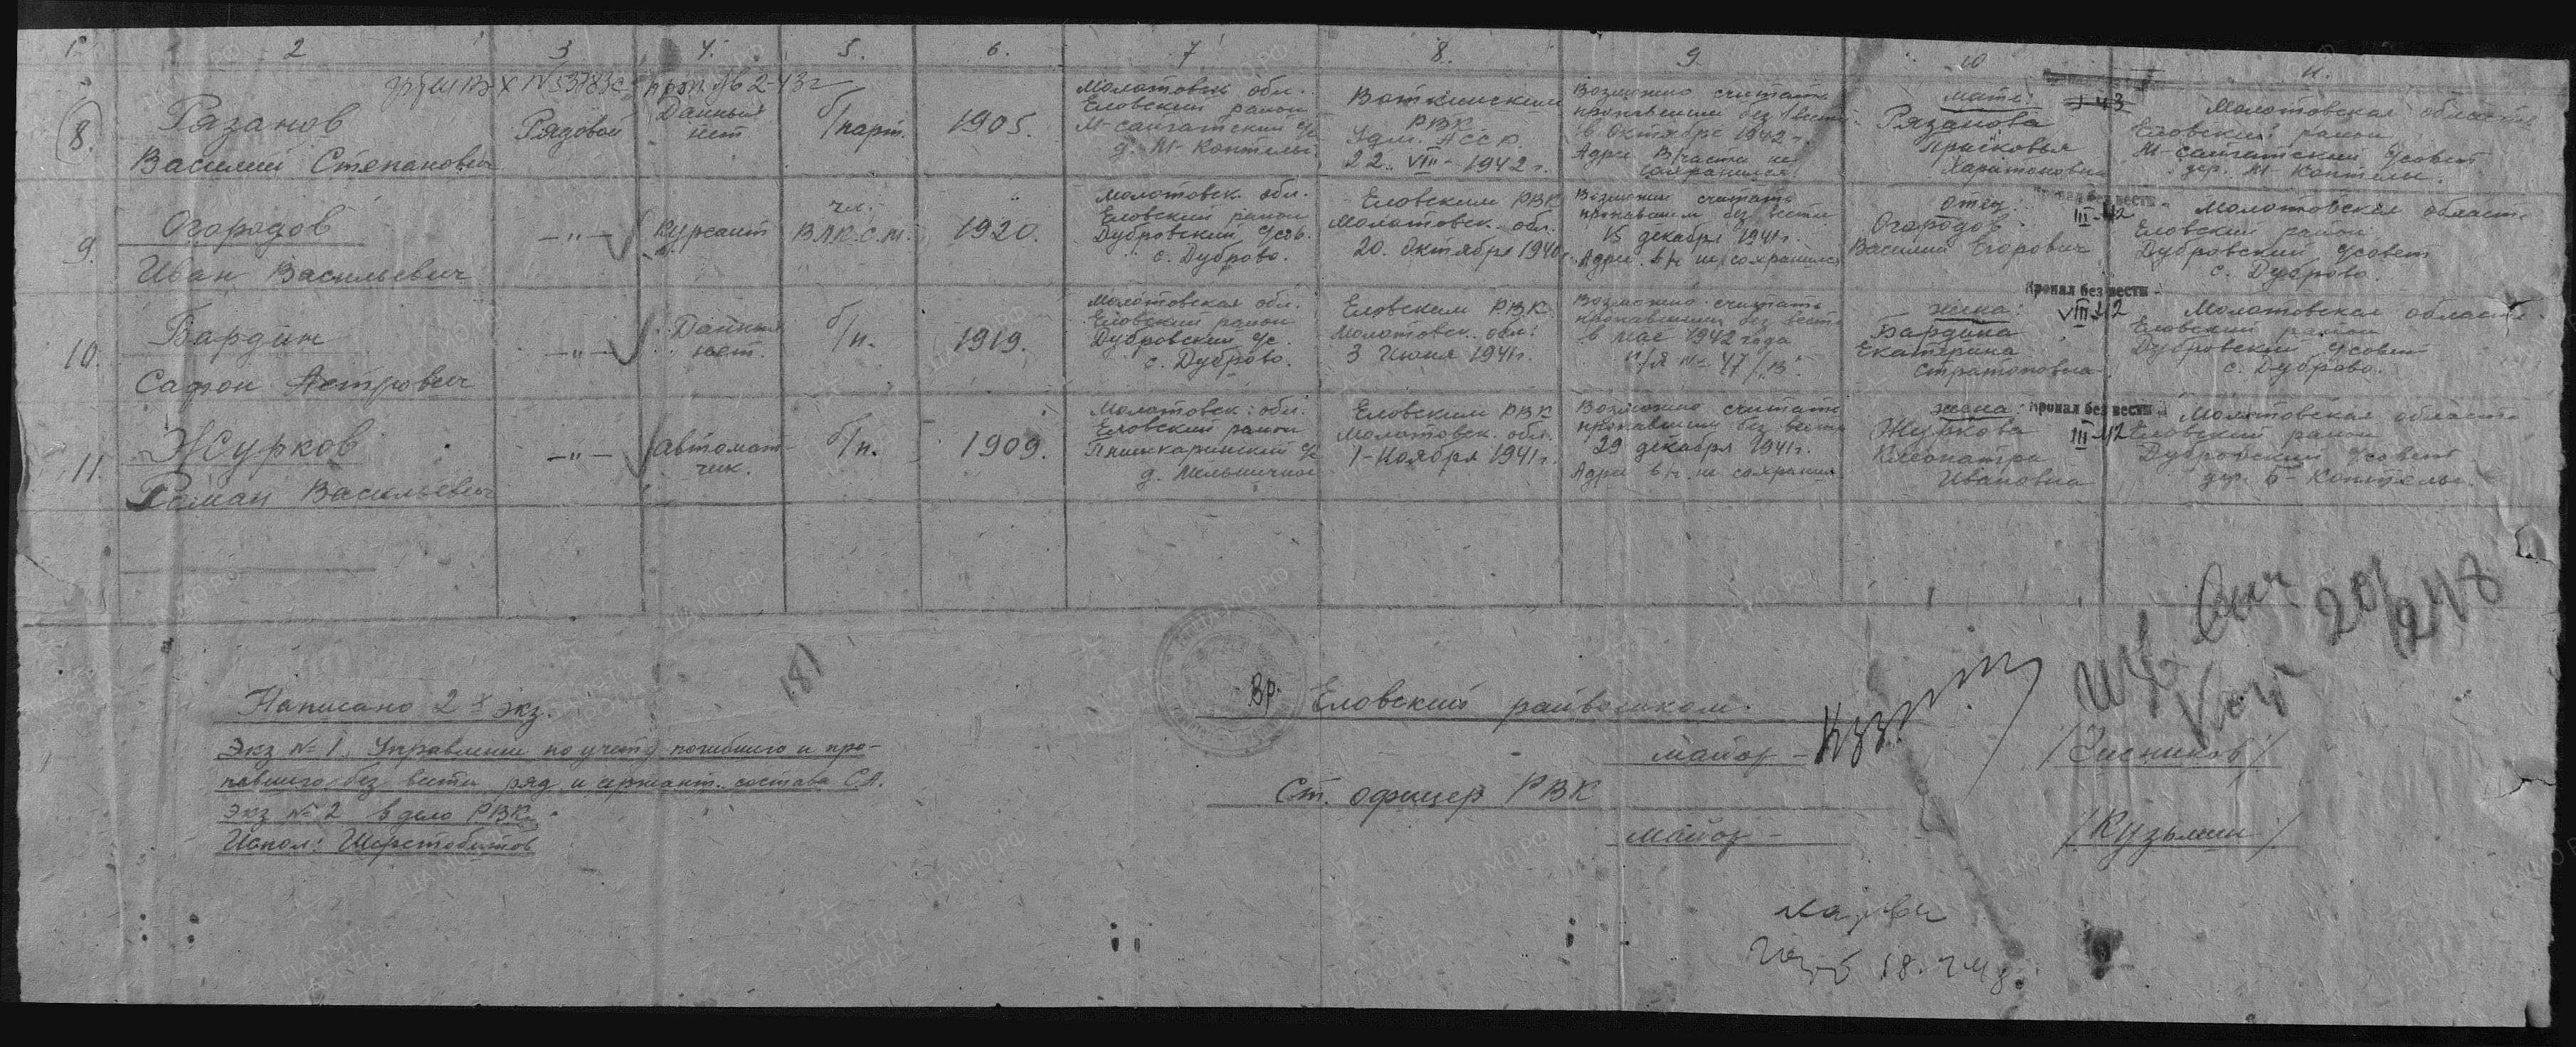 1. 2 3 4. 5. 6. 7 8. 9. 10 11.
8. Рязанов Василий Степанович
Рядовой
Данных нет
б/парт.
1905.
Молотовск. обл.
Еловский район
М-Сайгатский с/с
д. М-Коптелы
Воткинским
РВК
Удм. АССР.
22. VIII - 1942 г.
Возможно считать
пропавшим без вести
в Октябре 1942 г.
Адрес в/части не
сохранился.
мать:
Рязанова
Прасковья
Харитоновна
43
Молотовская область
Еловский район
М-Сайгатский с/совет
дер. М-Коптелы.
9. Огородов
Иван Васильевич
— " —
Курсант
чл.
ВЛКСМ.
1920.
Молотовск. обл.
Еловский район
Дубровский с/сов.
с. Дуброво.
Еловским РВК
Молотовск. обл.
20. Октября 1940г.
Возможно считать
пропавшим без вести
15 декабря 1941г.
Адрес в/ч не сохранился
отец
Огородов
Василий Егорович
Пропал без вести
III-42
Молотовская область
Еловский район
Дубровский с/совет
с. Дуброво.
10. Бардин
Сафон
— " —
Данных
нет.
б/п.
1919.
Молотовская обл.
Еловский район
Дубровский с/с.
с. Дуброво.
Еловским РВК
Молотовск. обл.
3 Июня 1941г.
Возможно считать
пропавшим без вести
в мае 1942 года
п/я № 47/"В".
жена:
Бардина
Екатерина
Пропал без вести
VIII-42
Молотовская область
Еловский район
Дубровский с/совет
с. Дуброво.
11. Журков
Роман Васильевич
— " —
Автомат-
чик.
б/п.
1909.
Молотовск. обл.
Еловский район
с/с
д. Мельничное
Еловским РВК
Молотовск. обл.
1-Ноября 1941г.
Возможно считать
пропавшим без вести
29 декабря 1941г.
Адрес в/ч не сохранился
жена:
Журкова
Клеопатра
Ивановна
Пропал без вести
III-42
Молотовская область
Еловский район
Дубровский с/совет
дер. Б-Коптелы.
181
Написано 2х экз.
Экз № 1. Управлении по учету погибшего и про-
павшего без вести ряд и сержант. состава С.А.
Экз № 2 в дело РВК.
Испол: Шерстобитов
Вр. Еловский райвоенком.
майор -
Ст. офицер РВК
майор - /Кузьмин/
20/2 48